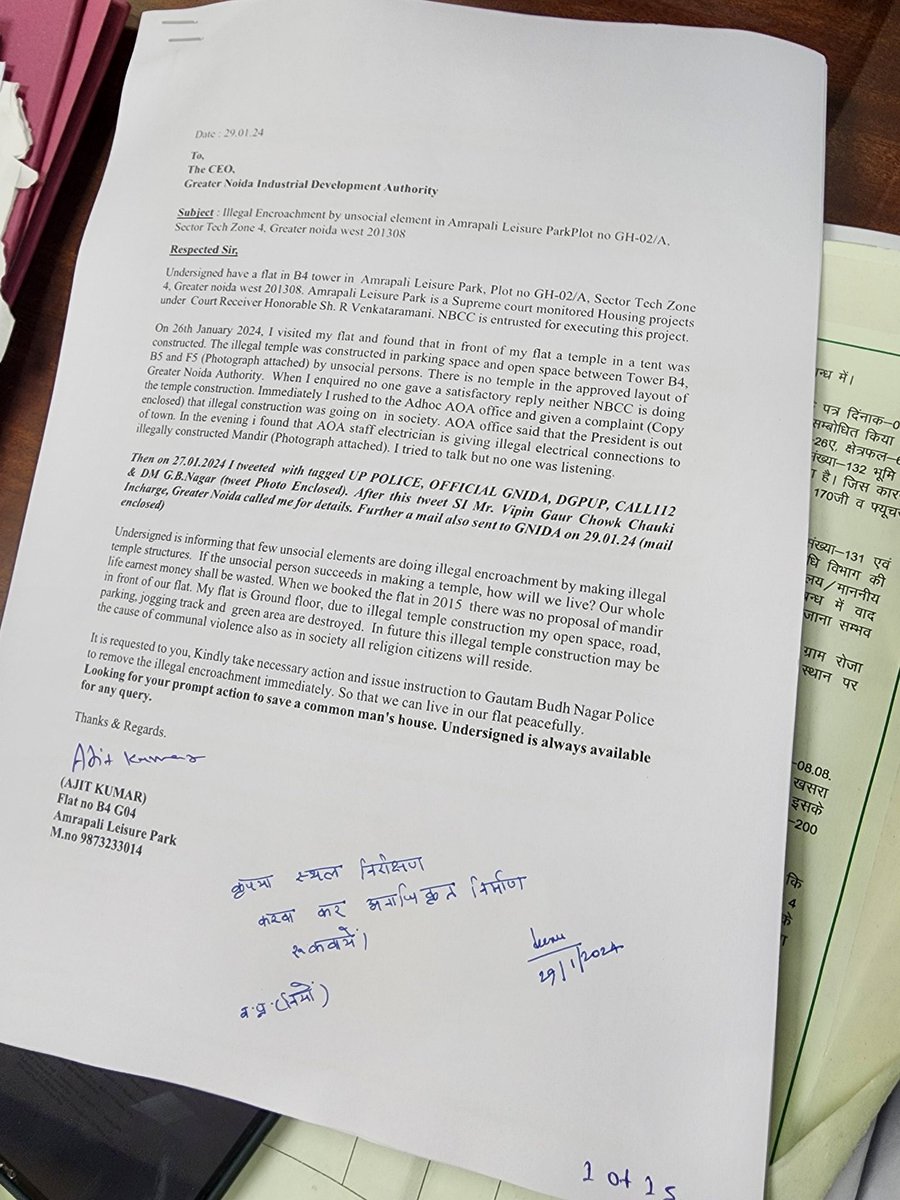 Date : 29.01.24
To,
The CEO,
Greater Noida Industrial Development Authority
Subject : Illegal Encroachment by unsocial element in Amrapali Leisure ParkPlot no GH-02/A,
Sector Tech Zone 4, Greater noida west 201308
Respected Sir,
Undersigned have a flat in B4 tower in Amrapali Leisure Park, Plot no GH-02/A, Sector Tech Zone
4, Greater noida west 201308. Amrapali Leisure Park is a Supreme court monitored Housing projects
under Court Receiver Honorable Sh. R Venkataramani. NBCC is entrusted for executing this project.
On 26th January 2024, I visited my flat and found that in front of my flat a temple in a tent was
constructed. The illegal temple was constructed in parking space and open space between Tower B4,
B5 and F5 (Photograph attached) by unsocial persons. There is no temple in the approved layout of
Greater Noida Authority. When I enquired no one gave a satisfactory reply neither NBCC is doing
the temple construction. Immediately I rushed to the Adhoc AOA office and given a complaint (Copy
enclosed) that illegal construction was going on in society. AOA office said that the President is out
of town. In the evening i found that AOA staff electrician is giving illegal electrical connections to
illegally constructed Mandir (Photograph attached). I tried to talk but no one was listening.
Then on 27.01.2024 I tweeted with tagged UP POLICE, OFFICIAL GNIDA, DGPUP, CALL112
& DM G.B.Nagar (tweet Photo Enclosed). After this tweet SI Mr. Vipin Gaur Chowk Chauki
Incharge, Greater Noida called me for details. Further a mail also sent to GNIDA on 29.01.24 (mail
enclosed)
Undersigned is informing that few unsocial elements are doing illegal encroachment by making illegal
temple structures. If the unsocial person succeeds in making a temple, how will we live? Our whole
life earnest money shall be wasted. When we booked the flat in 2015 there was no proposal of mandir
in front of our flat. My flat is Ground floor, due to illegal temple construction my open space, road,
parking, jogging track and green area are destroyed. In future this illegal temple construction may be
the cause of communal violence also as in society all religion citizens will reside.
It is requested to you, Kindly take necessary action and issue instruction to Gautam Budh Nagar Police
to remove the illegal encroachment immediately. So that we can live in our flat peacefully.
Looking for your prompt action to save a common man's house. Undersigned is always available
for any query.
Thanks & Regards.
Ajit Kumar
(AJIT KUMAR)
Flat no B4 G04
Amrapali Leisure Park
M.no 9873233014
कृपया स्थल निरीक्षण
करवा कर अनाधिकृत निर्माण
रूकवायें।
व.प्र.(नियो)
29/1/2024
1 of 15
न्ध में।
पत्र दिनांक-0
सम्बोधित किया
26ए, क्षेत्रफल-6
ख्या-132 भूमि
है। जिस कार
170जी व फ्यूच
संख्या-131 एवं
धि विभाग की
लय/माननीय
बन्ध में वाद
जाना सम्भव
ग्राम रोजा
स्थान पर
-08.08.
खसरा
इसके
-200
कि
4